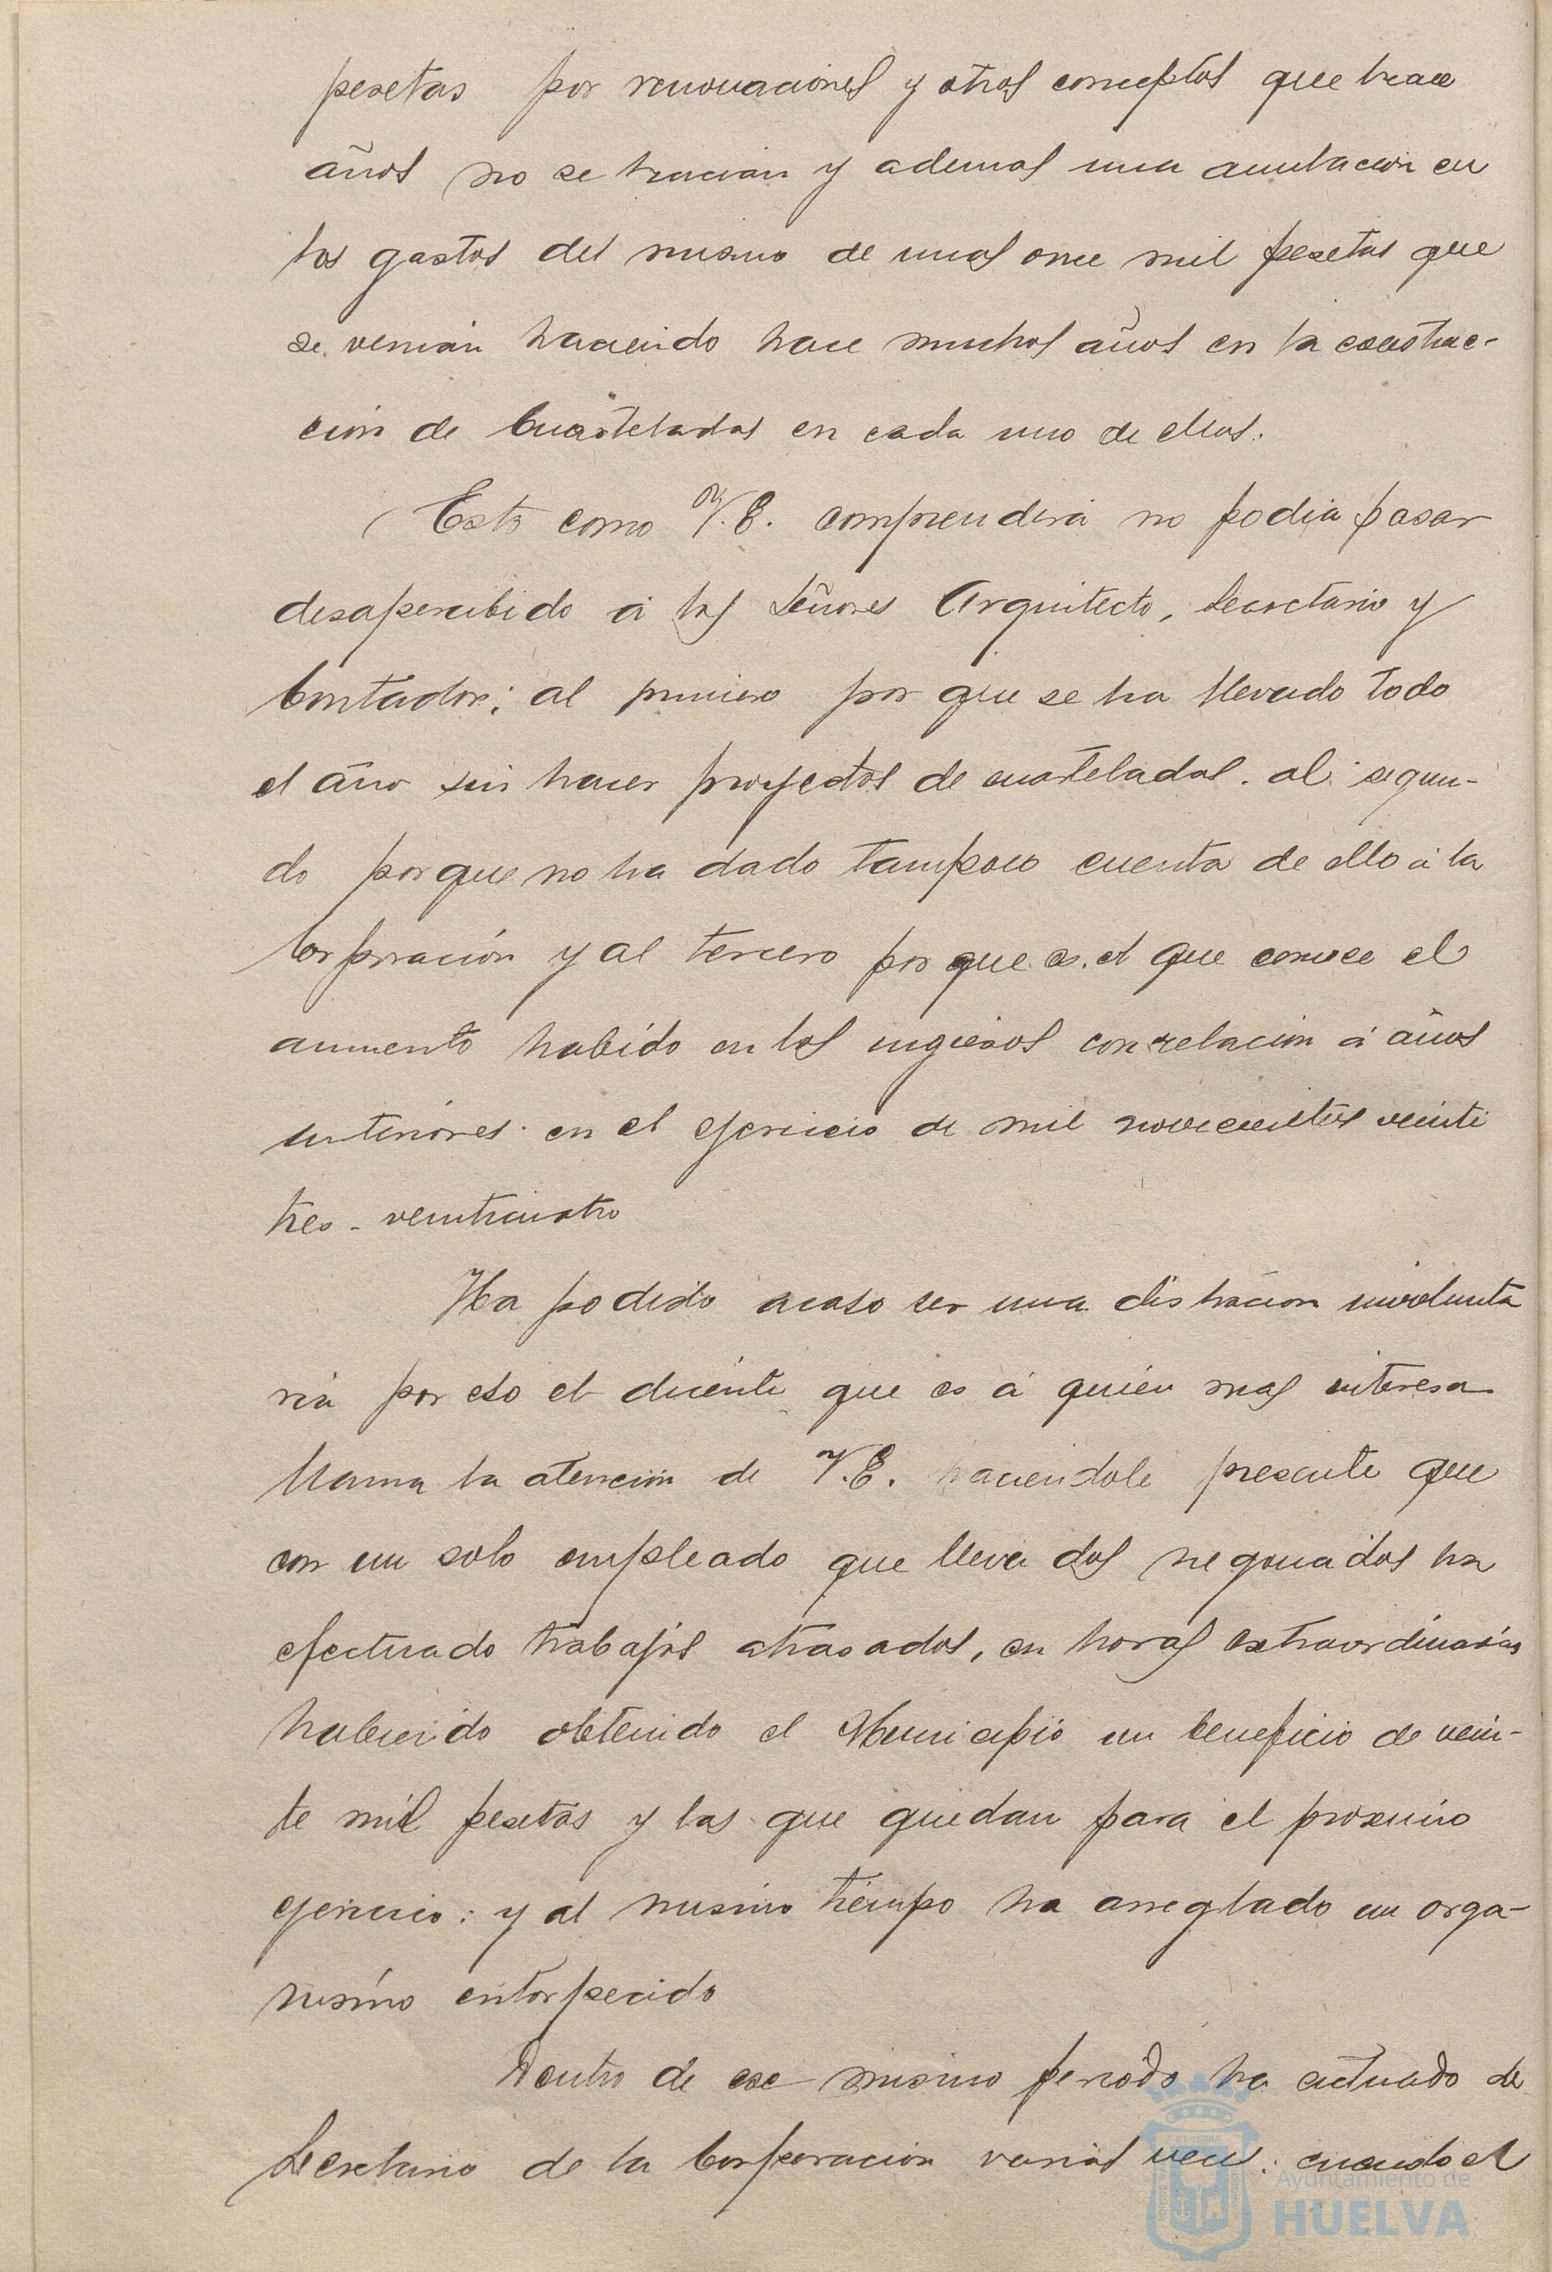 pesetas por renovaciones y otros conceptos que hace
años no se hacian y ademas una amutacion en
los gastos del mismo de unas once mil pesetas que
se venian haciendo hace muchos años en la construc-
cion de Cuarteladas en cada uno de ellos.
Esto como V.E. comprenderá no podia pasar
desapercibido á los Señores Arquitecto, Secretario y
Contador; al primero por que se ha llevado todo
el año sin hacer proyectos de cuarteladas. al segun-
do porque no ha dado tampoco cuenta de ello á la
Corporación y al tercero por que es el que conoce el
aumento habido en los ingresos con relación á años
anteriores en el ejercicio de mil novecientos veinti
tres - veinticuatro
Ha podido acaso ser una distracion involunta
ria por eso el diciente que es á quien mas interesa
llama la atención de V.E. haciendole presente que
con un solo empleado que lleva dos negociados ha
efectuado trabajos atrasados, en horas extraordinarias
habiendo obtenido el Municipio un beneficio de vein-
te mil pesetas y las que quedan para el proximo
ejercicio: y al mismo tiempo ha arreglado un orga-
nismo entorpecido
Dentro de ese mismo periodo ha actuado de
Secretario de la Corporacion varias veces: cuando el
Ayuntamiento de
HUELVA